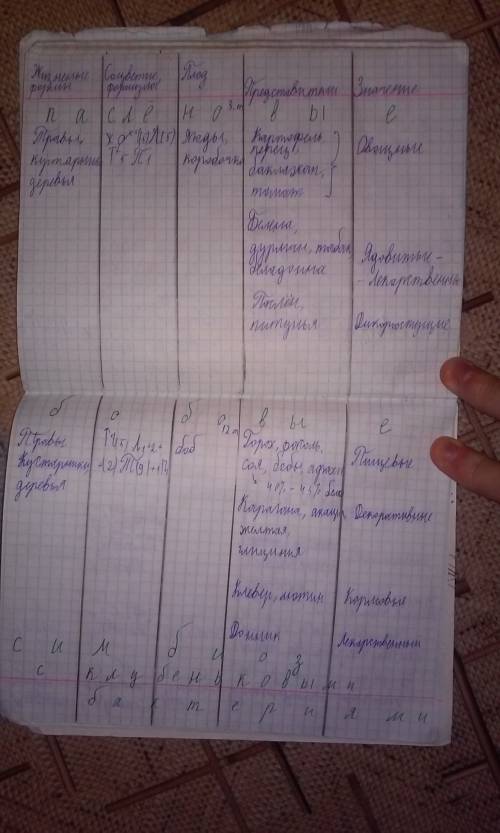 Жизненные формы
Соцветие, формула
Плод
Представители
Значение
пасленовые
3 т
Травы,
кустарники
деревья
Ягоды,
коробочка
Картофель
перец,
баклажан,
томат
Овощные
Белена,
дурман, табак,
белладонна
Ядовитые -
- лекарственные
Паслён,
петунья
Дикорастущие
бобовые
12 т
Травы
Кустарники
деревья
боб
Горох, фасоль,
соя, бобы, арахис
Пищевые
Карагана, акация
желтая,
глициния
Декоративные
Клевер, люпин
Кормовые
Донник
Лекарственный
симбиоз
с клубеньковыми
бактериями